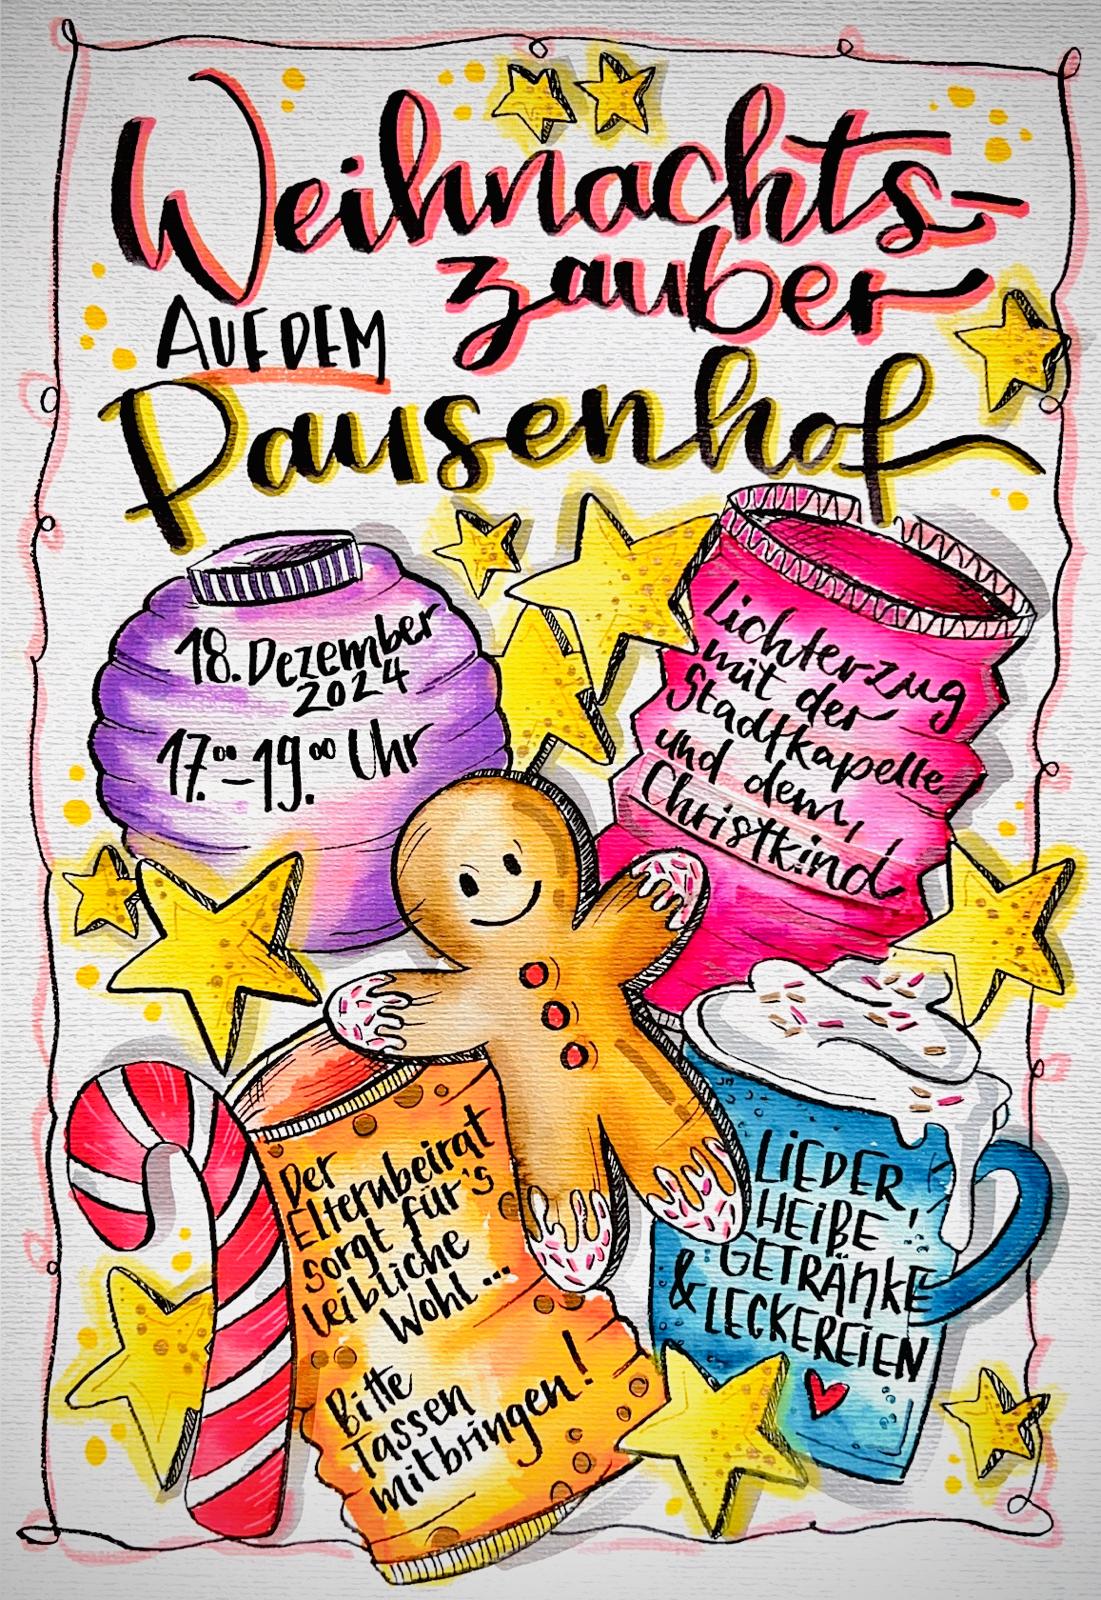 Weihnachts-
zauber
AUF DEM
Pausenhof
18. Dezember
2024
17.00-19.00 Uhr
Lichterzug
mit der
Stadtkapelle
und dem
Christkind
Der
Elternbeirat
sorgt für's
leibliche
Wohl...
Bitte
Tassen
mitbringen!
LIEDER,
HEIßE
GETRÄNKE
& LECKEREIEN